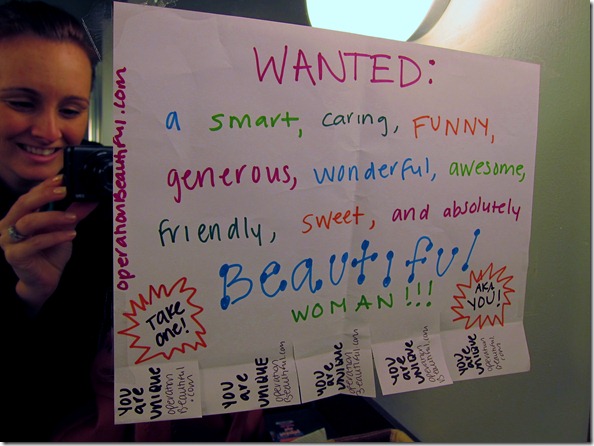 WANTED:
a smart, caring, FUNNY,
generous, wonderful, awesome,
friendly, sweet, and absolutely
BEAUTIFUL
WOMAN!!!
operationBeautiful.com
TAKE
ONE!
AKA
YOU!
YOU
are
UNIQUE
operation
Beautiful
.com
YOU
are
UNIQUE
operation
Beautiful.com
YOU
are
UNIQUE
operation
Beautiful.com
YOU
are
UNIQUE
operation
Beautiful.com
YOU
are
UNIQUE
operation
Beautiful
.com